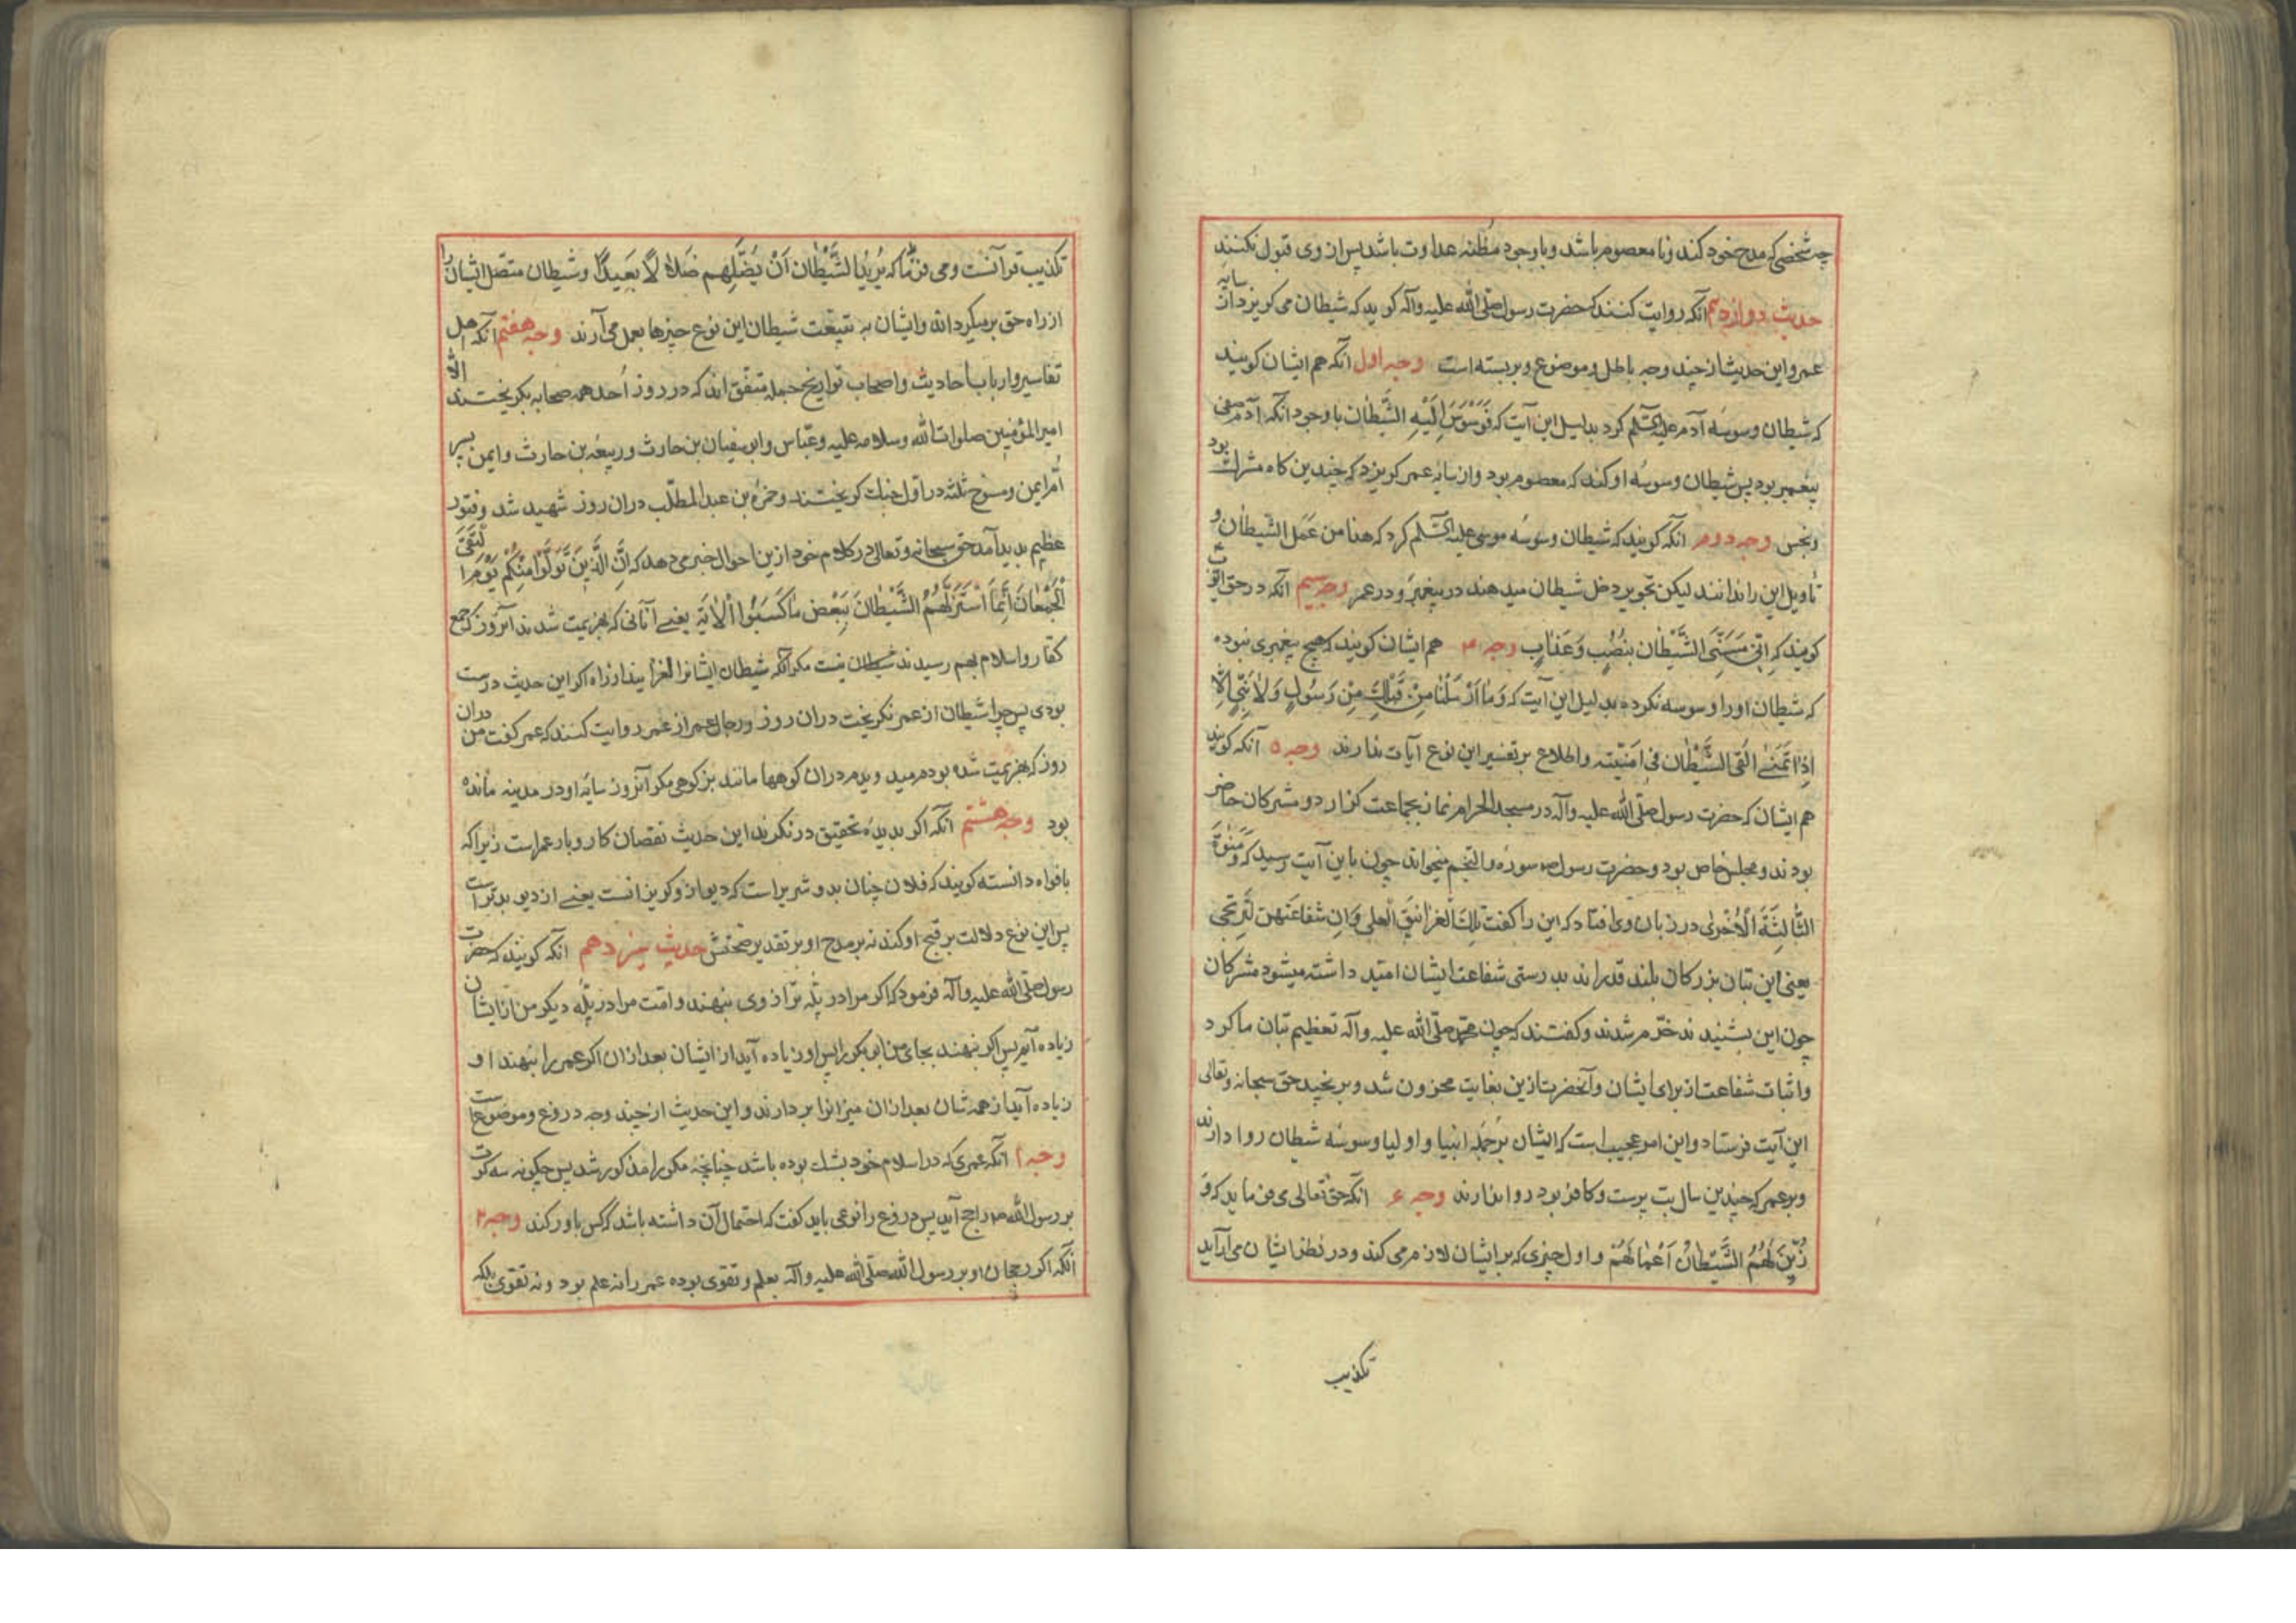 چه شخصی که مدح خود کند و نا معصوم باشد و با وجود مظنه عداوت باشد پس از وی قبول نکنند
حدیث دوازدهم آنکه روایت کنند که حضرت رسول صلّی الله علیه وآله کوید که شیطان می کریزد از سایه
عمر و این حدیث از چند وجه باطل و موضوع و بربسته است وجه اول آنکه هم ایشان کویند
که شیطان وسوسه آدم علیه السّلم کرد بدلیل این آیت که فَوَسْوَسَ اِلَیْهِ الشَّیْطٰان با وجود آنکه آدم صفی
پیغمبر بود پس شیطان وسوسه او کند که معصوم بود و از سایه عمر کریزد که چندین کاه مشرک بود
و نجس وجه دوم آنکه کویند که شیطان وسوسه موسی علیه السّلم کرد که هذا من عَمَل الشَّیطٰان و
تأویل این را ندانند لیکن تجویز دخل شیطان میدهند در پیغمبر و در عمر وجه سیم آنکه در حق ایّوب
کویند که اِنّی مَسَّنِیَ الشَّیْطٰان بِنُصْبٍ وَعَذٰابٍ وجه ۴ هم ایشان کویند که هیچ پیغمبری نبوده
که شیطان او را وسوسه نکرده بدلیل این آیت که وَمٰا اَرْسَلْنٰا مِنْ قَبْلِکَ مِنْ رَسُولٍ وَلٰا نَبِیٍّ اِلّٰا
اِذٰا تَمَنّٰی اَلْقَی الشَّیْطٰان فی اُمْنِیَّتِه واطلاع بر تفسیر این نوع آیات ندارند وجه ۵ آنکه کویند
هم ایشان که حضرت رسول صلّی الله علیه وآله در مسجد الحرام نماز بجماعت کزارد و مشرکان حاضر
بودند و مجلس خاص بود و حضرت رسول ص سوره والنّجم میخواند چون باین آیت رسید که وَمَنٰوةَ
الثّٰالِثَةَ الْاُخْرٰی در زبان وی افتاد که این را کفت تِلْکَ الْغَرٰانیق الْعلی وَاِن شفاعتهن لَتُرتجی
یعنی این بتان بزرکان بلند قدراند بدرستی شفاعت ایشان امید داشته میشود مشرکان
چون این بشنیدند خرّم شدند و کفتند که چون محمّد صلّی الله علیه وآله تعظیم بتان ما کرد
و اثبات شفاعت از برای ایشان و آنحضرت ازین بغایت محزون شد و برنجید حق سبحانه وتعالی
این آیت فرستاد و این امر عجیب است که ایشان بر جمله انبیا و اولیا وسوسه شیطان روا دارند
و بر عمر که چندین سال بت پرست و کافر بود روا ندارند وجه ۶ آنکه حق تعالی می فرماید که وَ
زَیَّنَ لَهُمُ الشَّیْطٰانُ اَعْمٰالَهُمْ و اول چیزی که بر ایشان لازم می کند و در نظر ایشان می آراید
تکذیب
تکذیب قرآنست و می فرماید که یُریدُ الشَّیْطٰان اَنْ یُضِلَّهُم ضَلٰالًا بَعیدًا و شیطان متصّل ایشان را
از راه حق بر میکرداند و ایشان به تبیّعت شیطان این نوع چیزها بعمل می آرند وجه هفتم آنکه اهل
تفاسیر و ارباب احادیث و اصحاب تواریخ جمله متّفق اند که در روز اُحد همه صحابه بکریختند الّا
امیر المؤمنین صلوات الله وسلامه علیه و عبّاس و ابو سفیان بن حارث و ربیعه بن حارث و ایمن پسر
اُمّ ایمن و ثلثه در اوّل جنک کریختند و حمزه بن عبد المطلّب در ان روز شهید شد و فتور
عظیم بدید آمد حق سبحانه وتعالی در کلام خود ازین احوال خبر می دهد که اِنَّ الَّذینَ تَوَلَّوْا مِنْکُمْ یَوْمَ الْتَقَی
الْجَمْعٰانِ اِنَّمَا اسْتَزَلَّهُمُ الشَّیْطٰانُ بِبَعْضِ مٰا کَسَبُوا اْلٰایَة یعنی آنانی که بهزیمت شدند آنروز که جمع
کفّار و اسلام بهم رسیدند شیطان نیست مکر آنکه شیطان ایشانرا لغزانید از راه اکر این حدیث درست
بودی پس چرا شیطان از عمر نکریخت در ان روز و رجال عمر از عمر روایت کنند که عمر کفت من در ان
روز که بهزیمت شده بودم میدویدم در ان کوهها مانند بز کوهی مکر آنروز سایه او در مدینه مانده
بود وجه هشتم آنکه اکر بدیده تحقیق در نکرند این حدیث نقصان کار و بار عمر است زیرا که
بافواه دانسته کویند که فلان چنان بد و شریر است که دیو از و کریزانست یعنی از دیو بدتر است
پس این نوع دلالت بر قبح او کند نه بر مدح او بر تقدیر صحّتش حدیث سیزدهم آنکه کویند که حضرت
رسول صلّی الله علیه وآله فرمود که اکر مرا در پلّه ترازوی بنهند و امّت مرا در پلّه دیکر من از ایشان
زیاده آیم پس اکر بنهند بجای من ابو بکر را پس او زیاده آید از ایشان بعد از ان اکر عمر را بنهند او
زیاده آید از همه شان بعد از ان میزانرا بردارند و این حدیث از چند وجه دروغ و موضوع است
وجه ۱ آنکه عمری که در اسلام خود بشک بوده باشد چنانچه مکررا مذکور شد پس چکونه سه کرت
بر رسول الله ص راجح آید پس دروغ را نوعی باید کفت که احتمال آن داشته باشد که کس باور کند وجه ۲
آنکه اکر رجحان او بر رسول الله صلّی الله علیه وآله بعلم و تقوی بوده عمر را نه علم بود و نه تقوی بلکه